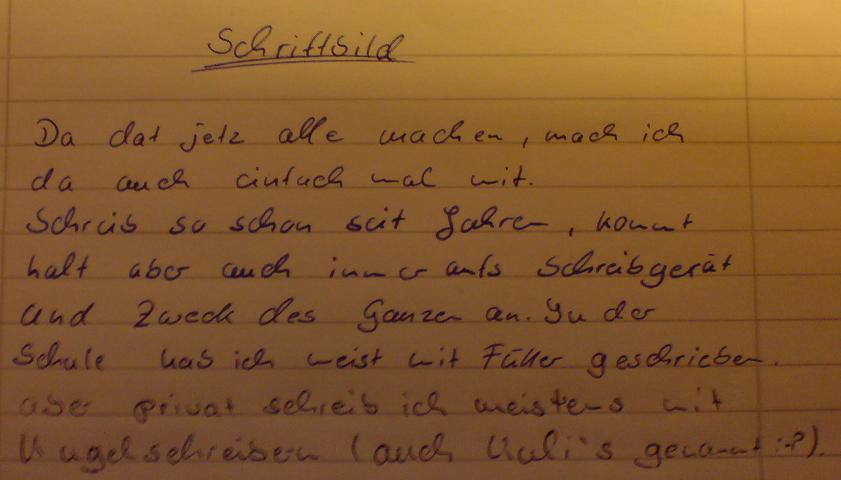 Schriftbild
Da dat jetz alle machen, mach ich
da auch einfach mal mit.
Schreib so schon seit Jahren, kommt
halt aber auch immer aufs Schreibgerät
und Zweck des Ganzen an. In der
Schule hab ich meist mit Füller geschrieben.
aber privat schreib ich meistens mit
Kugelschreibern (auch Kuli's genannt :-P).